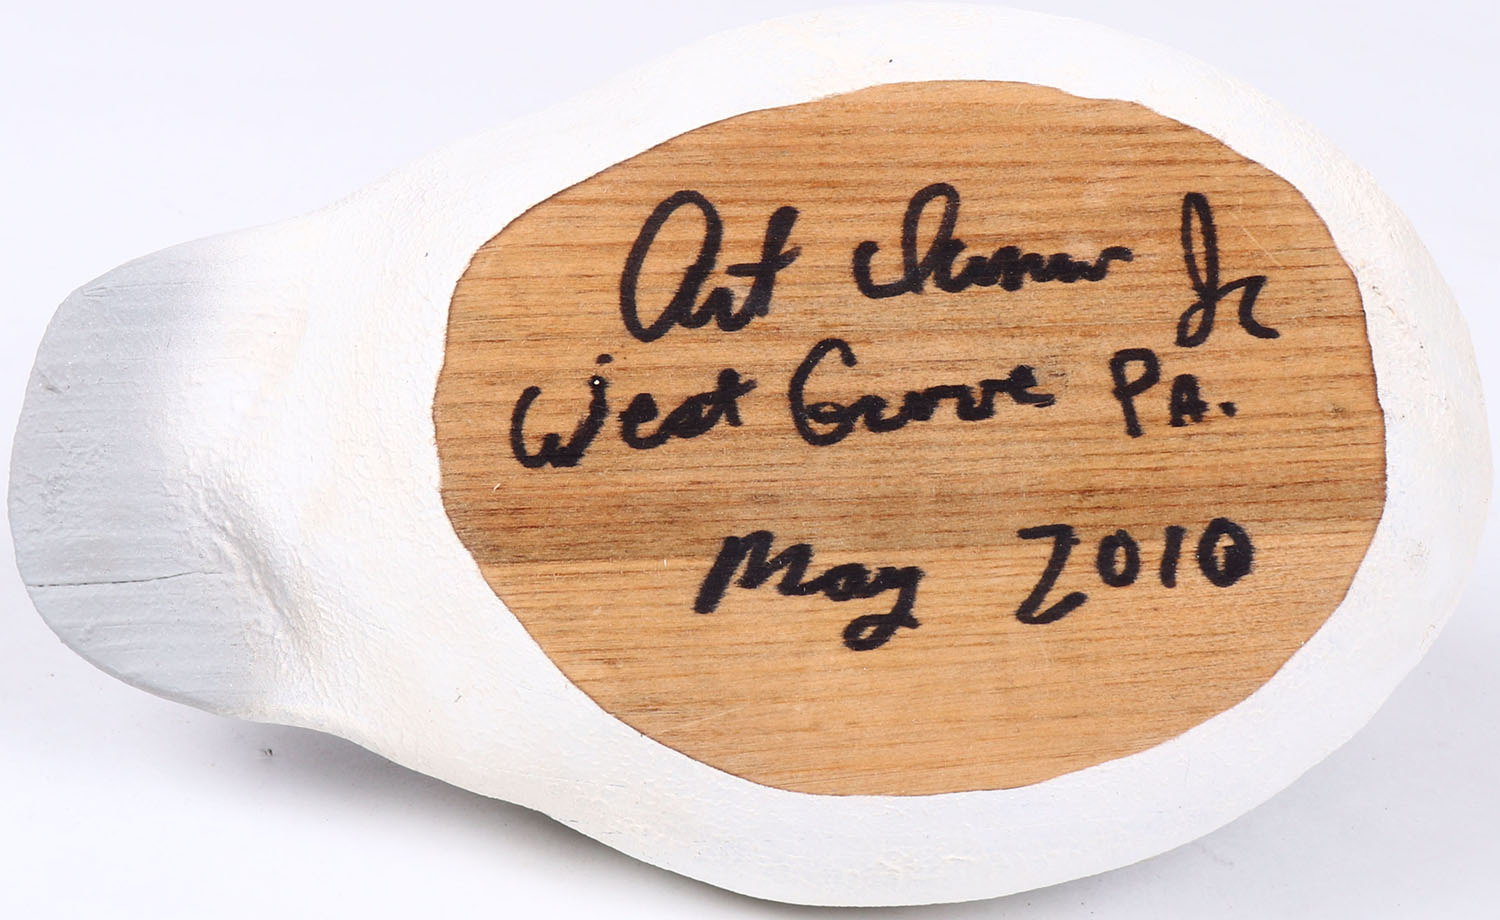 Art Jr
West Grove PA.
May 2010